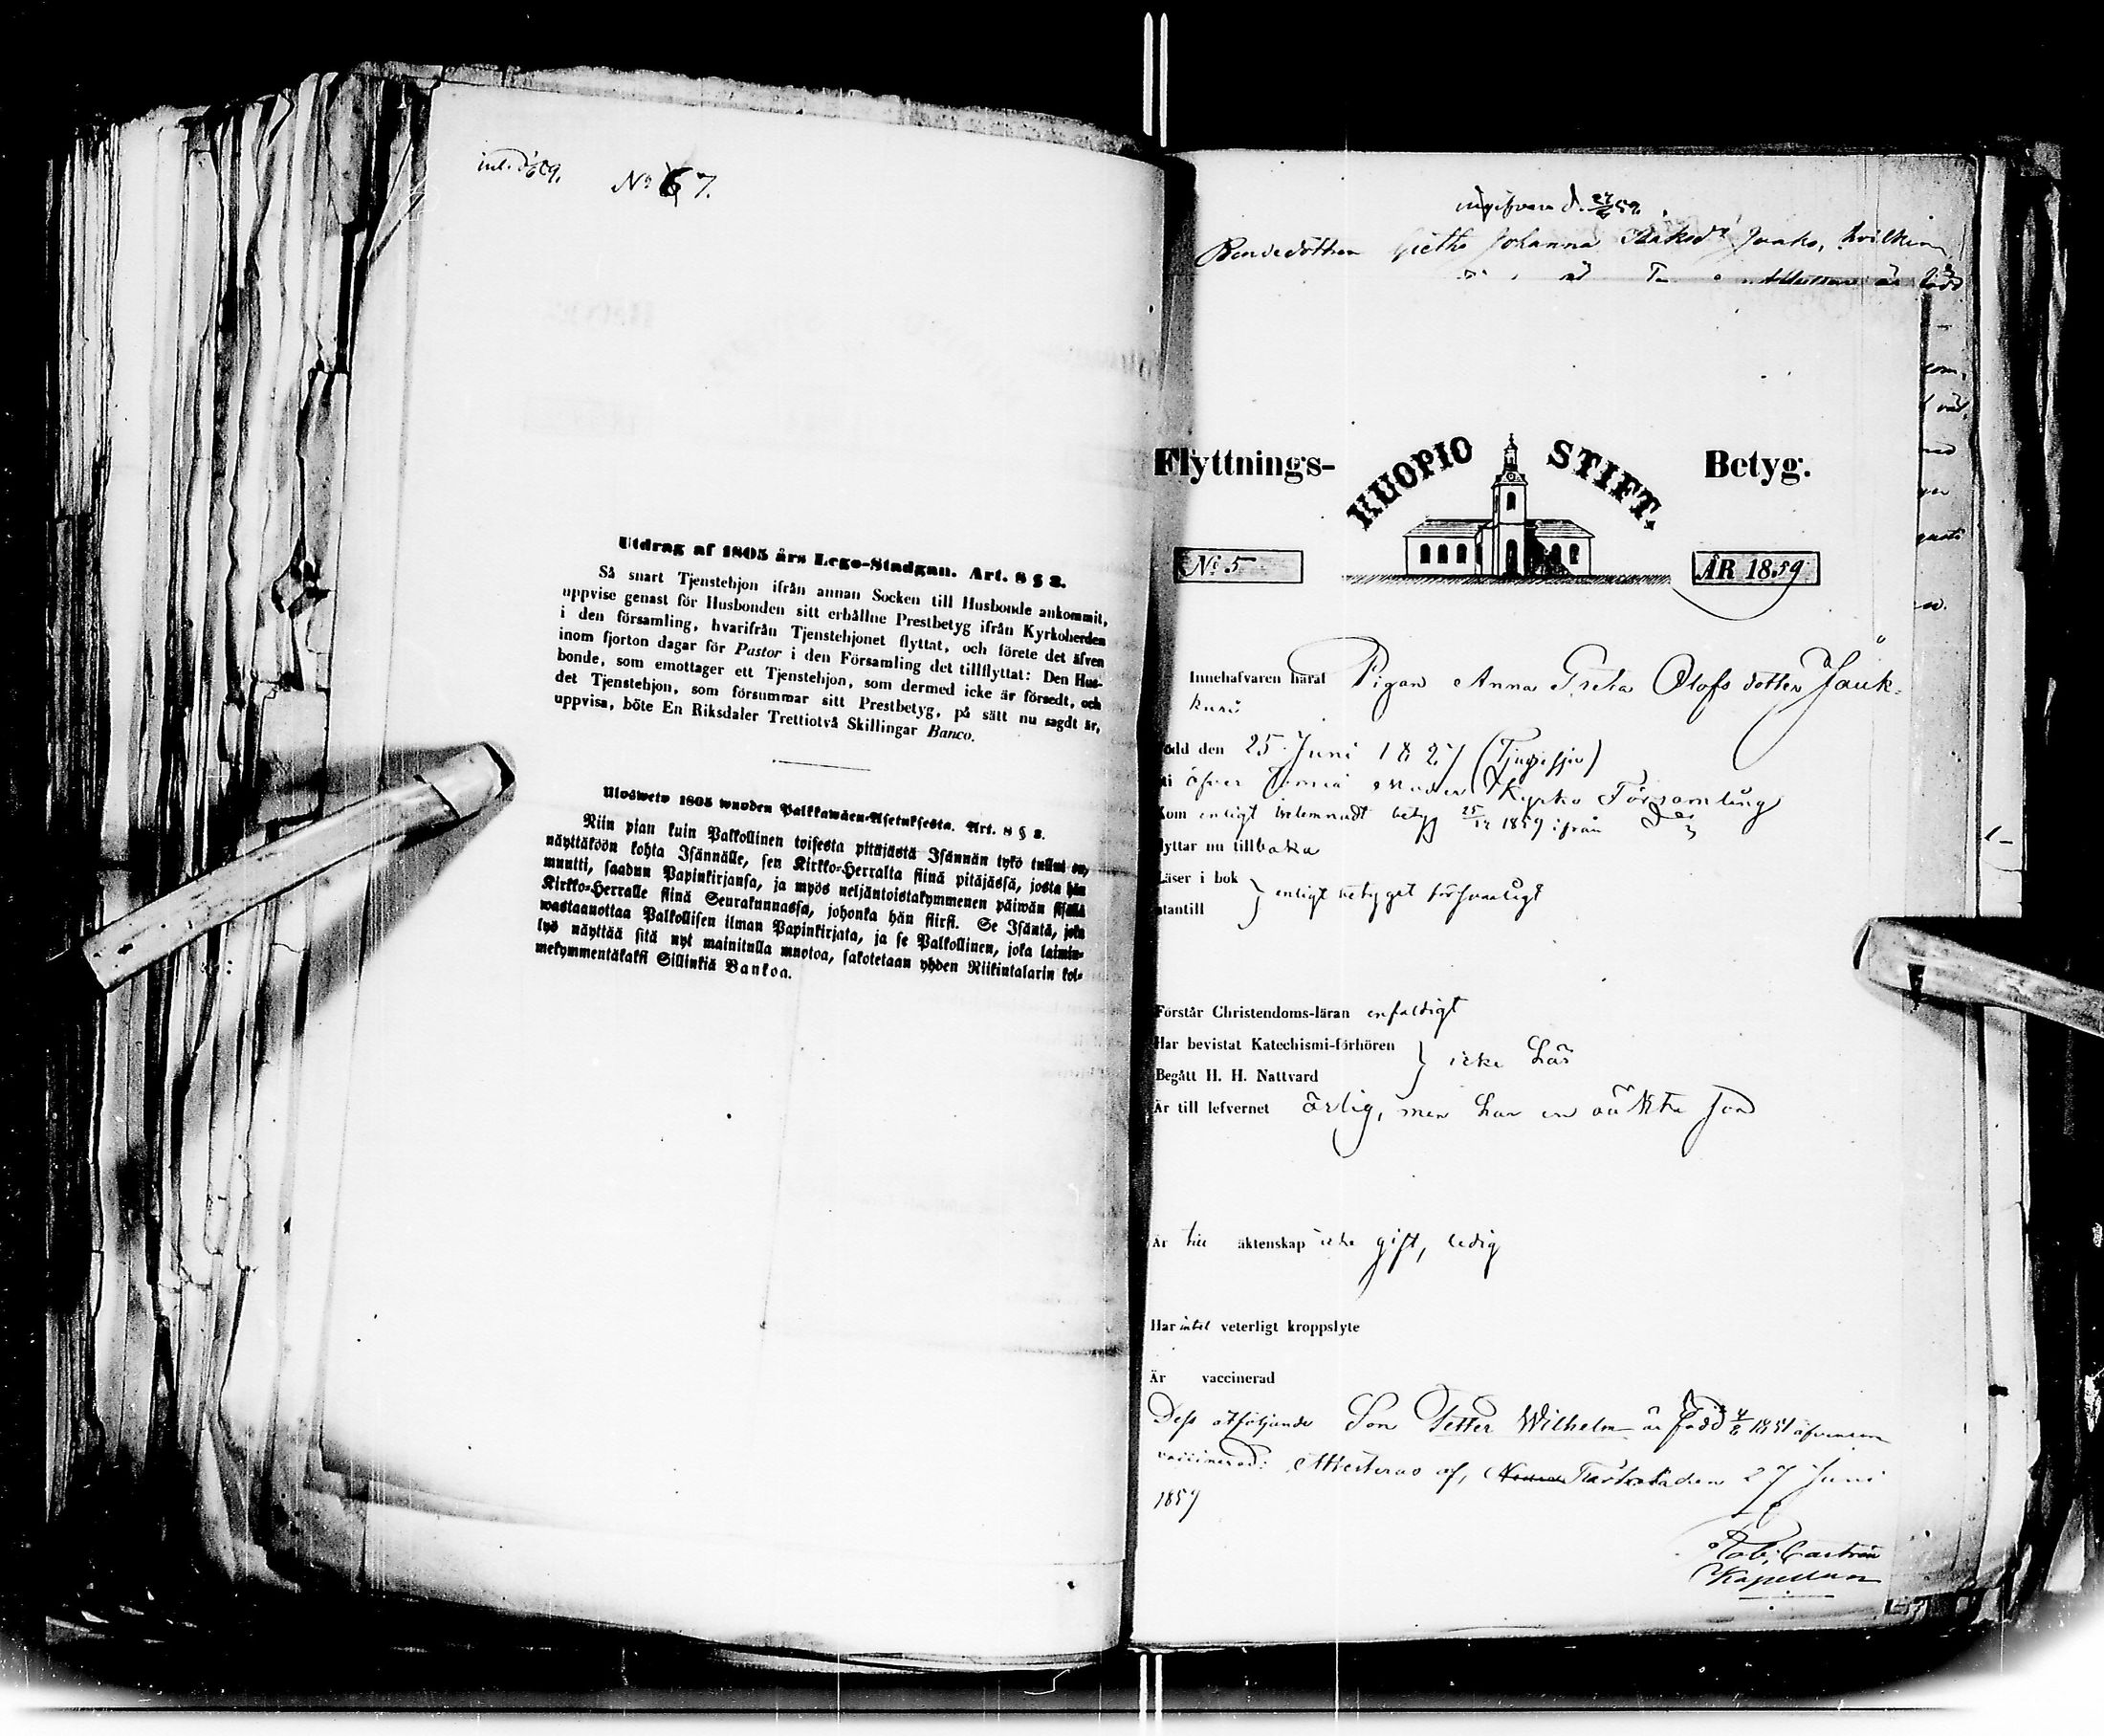 No 7.
Utdrag af 1805 års Lego-Stadgan. Art. 8 § 2.
Så snart Tjenstehjon ifrån annan Socken till Husbonde ankommit,
uppvise genast för Husbonden sitt erhållne Prestbetyg ifrån Kyrkoherden
i den församling, hvarifrån Tjenstehjonet flyttat, och förete det äfven
inom fjorton dagar för Pastor i den Församling det tillflyttat: Den Hus-
bonde, som emottager ett Tjenstehjon, som dermed icke är försedt, och
det Tjenstehjon, som försummar sitt Prestbetyg, på sätt nu sagdt är,
uppvisa, böte En Riksdaler Trettiotvå Skillingar Banco.
Ulosweto 1805 wuoden Palkkawäen-Asetuksesta. Art. 8 § 2.
Niin pian kuin Palkollinen toisesta pitäjästä Isännän tykö tullut on,
näyttäköön kohta Isännälle, sen Kirkko-Herralta siinä pitäjässä, josta hän
muutti, saadun Papinkirjansa, ja myös neljäntoistakymmenen päiwän sisällä
Kirkko-Herralle siinä Seurakunnassa, johonka hän siirsi. Se Isäntä, joka
wastaanottaa Palkollisen ilman Papinkirjata, ja se Palkollinen, joka laimin-
lyö näyttää sitä nyt mainitulla muotoa, sakotetaan yhden Riikintalarin kol-
mekymmentäkaksi Sillinkiä Bankoa.
Bondedottren Johanna hvilken
är född
Flyttnings- KUOPIO STIFT. Betyg.
No 5 ÅR 1859
Innehafvaren häraf Pigan Anna Greta Olofsdotter
född den 25 Juni 1827
i öfver Torneå Moder Kyrko Församling
kom enligt inlemnadt betyg 1859 ifrån
flyttar nu tillbaka
Läser i bok
utantill } enligt betyget försvarligt
Förstår Christendoms-läran enfaldigt
Har bevistat Katechismi-förhören
Begått H. H. Nattvard } icke här
Är till lefvernet ärlig, men har en oäkta son
Är till äktenskap icke gift, ledig
Har intet veterligt kroppslyte
Är vaccinerad
Dess åtföljande Son Petter Wilhelm är född 1851 äfvensom
vaccinerad: Attesteras af, den 27 Juni
1859
Castrén
Kapellan